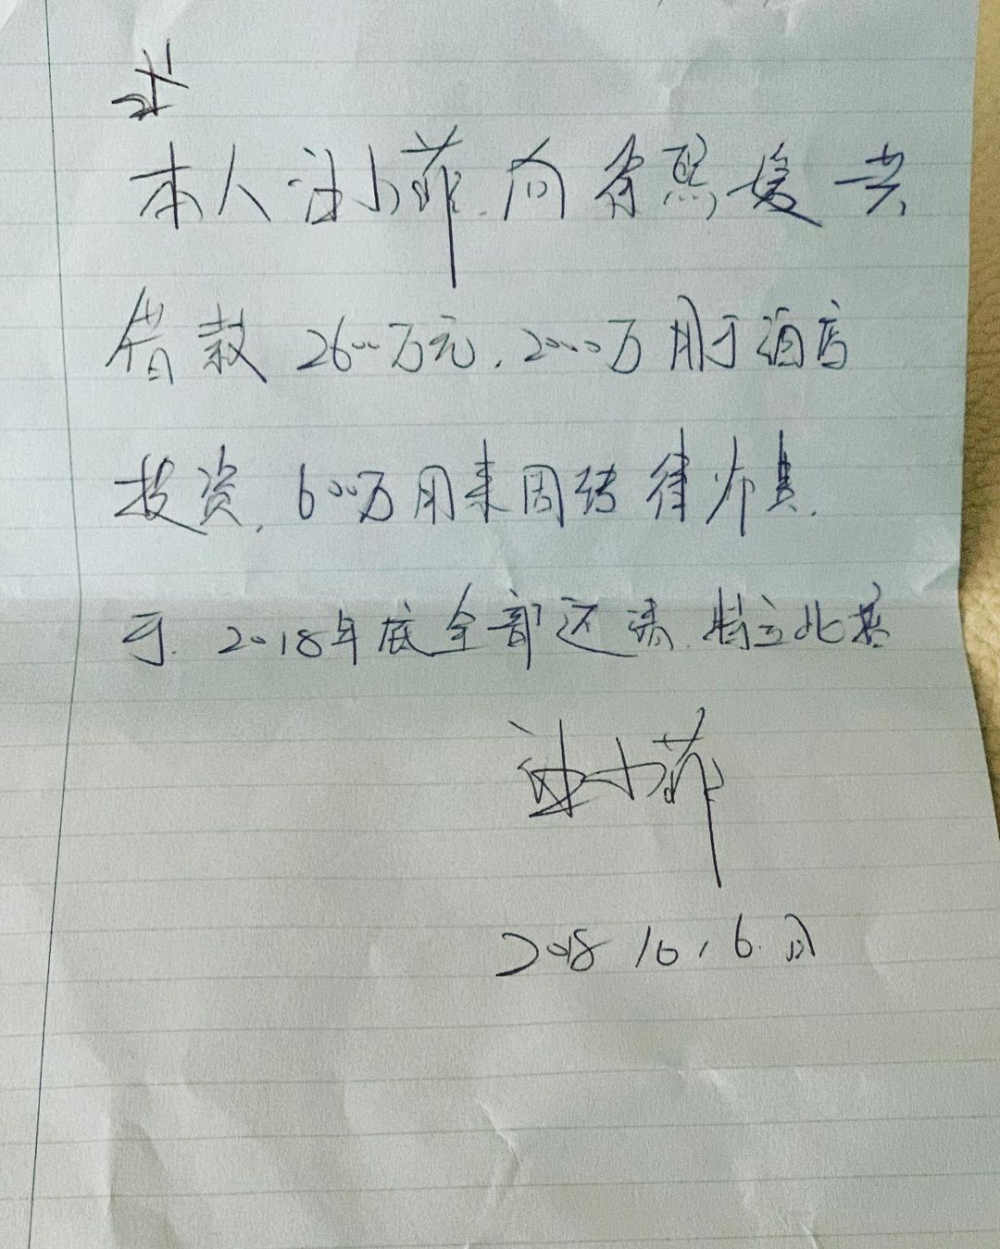 本人汪小菲.向徐熙媛 共
借款 2600万元.2000万用于酒店
投资.600万用来周转律师费.
于.2018年底全部还清.特立此
汪小菲
2018 10,6.